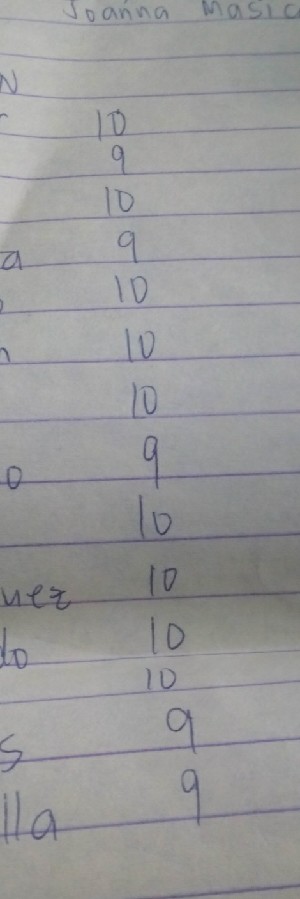 Joanna Masic
N
r 10
9
10
a 9
10
n 10
10
o 9
10
uez 10
do 10
10
s 9
lla 9